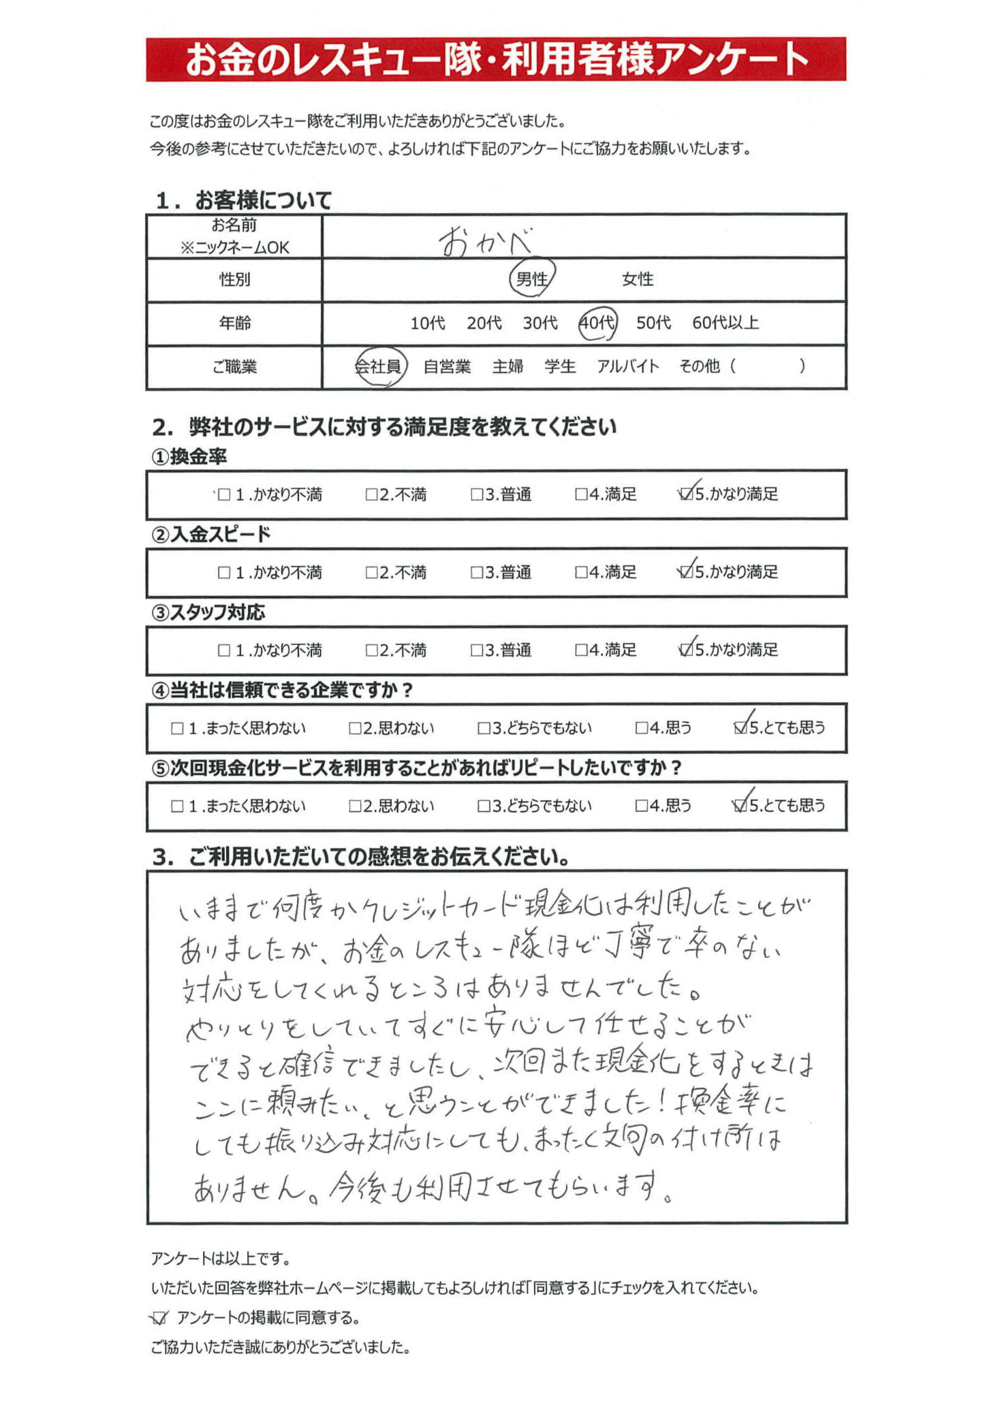 お金のレスキュー隊・利用者様アンケート
この度はお金のレスキュー隊をご利用いただきありがとうございました。
今後の参考にさせていただきたいので、よろしければ下記のアンケートにご協力をお願いいたします。
1．お客様について
お名前
※ニックネームOK
おかべ
性別 男性 女性
年齢 10代 20代 30代 40代 50代 60代以上
ご職業 会社員 自営業 主婦 学生 アルバイト その他（ ）
2．弊社のサービスに対する満足度を教えてください
①換金率
□1.かなり不満 □2.不満 □3.普通 □4.満足 ☑5.かなり満足
②入金スピード
□1.かなり不満 □2.不満 □3.普通 □4.満足 ☑5.かなり満足
③スタッフ対応
□1.かなり不満 □2.不満 □3.普通 □4.満足 ☑5.かなり満足
④当社は信頼できる企業ですか？
□1.まったく思わない □2.思わない □3.どちらでもない □4.思う ☑5.とても思う
⑤次回現金化サービスを利用することがあればリピートしたいですか？
□1.まったく思わない □2.思わない □3.どちらでもない □4.思う ☑5.とても思う
3．ご利用いただいての感想をお伝えください。
いままで何度かクレジットカード現金化は利用したことが
ありましたが、お金のレスキュー隊ほど丁寧で卒のない
対応をしてくれるところはありませんでした。
やりとりをしていてすぐに安心して任せることが
できると確信できましたし、次回また現金化をするときは
ここに頼みたい、と思うことができました！換金率に
しても振り込み対応にしても、まったく文句の付け所は
ありません。今後も利用させてもらいます。
アンケートは以上です。
いただいた回答を弊社ホームページに掲載してもよろしければ「同意する」にチェックを入れてください。
☑ アンケートの掲載に同意する。
ご協力いただき誠にありがとうございました。